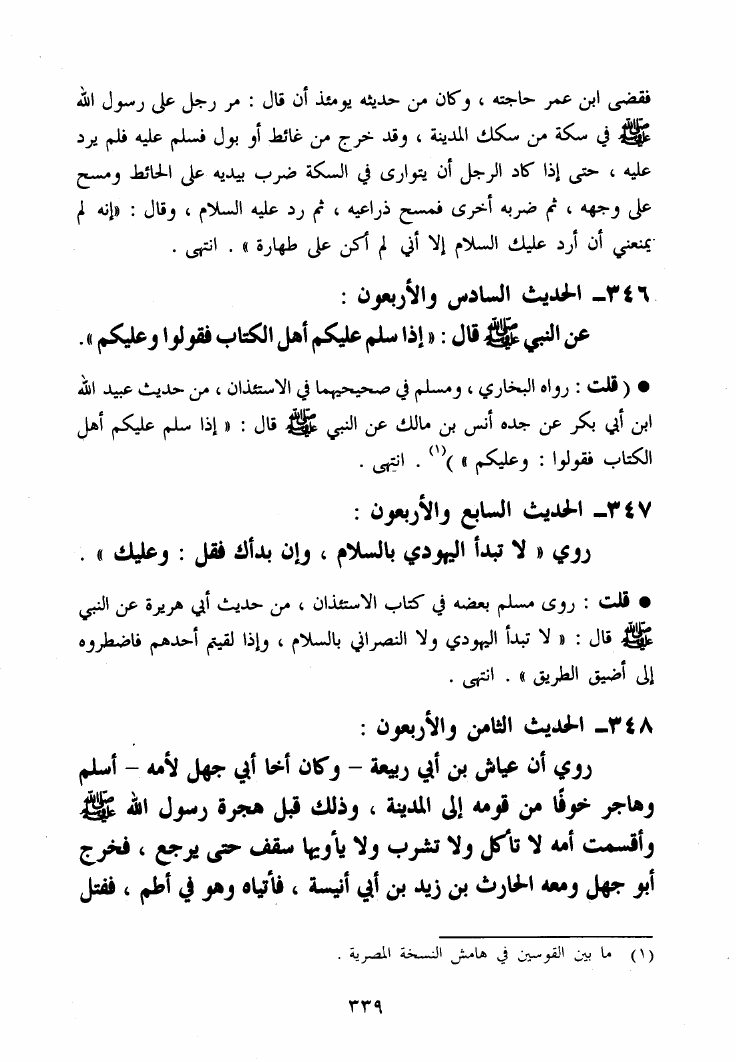 فقضى ابن عمر حاجته ، وكان من حديثه يومئذ أن قال : مر رجل على رسول الله
ﷺ في سكة من سكك المدينة ، وقد خرج من غائط أو بول فسلم عليه فلم يرد
عليه ، حتى إذا كاد الرجل أن يتوارى في السكة ضرب بيديه على الحائط ومسح
على وجهه ، ثم ضربه أخرى فمسح ذراعيه ، ثم رد عليه السلام ، وقال : «إنه لم
يمنعني أن أرد عليك السلام إلا أني لم أكن على طهارة » . انتهى .
٣٤٦ـ الحديث السادس والأربعون :
عن النبي ﷺ قال : « إذا سلم عليكم أهل الكتاب فقولوا وعليكم ».
● ( قلت : رواه البخاري ، ومسلم في صحيحيهما في الاستئذان ، من حديث عبيد الله
ابن أبي بكر عن جده أنس بن مالك عن النبي ﷺ قال : « إذا سلم عليكم أهل
الكتاب فقولوا : وعليكم » )(١) . انتهى .
٣٤٧ـ الحديث السابع والأربعون :
روي « لا تبدأ اليهودي بالسلام ، وإن بدأك فقل : وعليك » .
● قلت : روى مسلم بعضه في كتاب الاستئذان ، من حديث أبي هريرة عن النبي
ﷺ قال : « لا تبدأ اليهودي ولا النصراني بالسلام ، وإذا لقيتم أحدهم فاضطروه
إلى أضيق الطريق » . انتهى .
٣٤٨ـ الحديث الثامن والأربعون :
روي أن عياش بن أبي ربيعة – وكان أخا أبي جهل لأمه – أسلم
وهاجر خوفًا من قومه إلى المدينة ، وذلك قبل هجرة رسول الله ﷺ
وأقسمت أمه لا تأكل ولا تشرب ولا يأويها سقف حتى يرجع ، فخرج
أبو جهل ومعه الحارث بن زيد بن أبي أنيسة ، فأتياه وهو في أطم ، ففتل
(١) ما بين القوسين في هامش النسخة المصرية .
٣٣٩